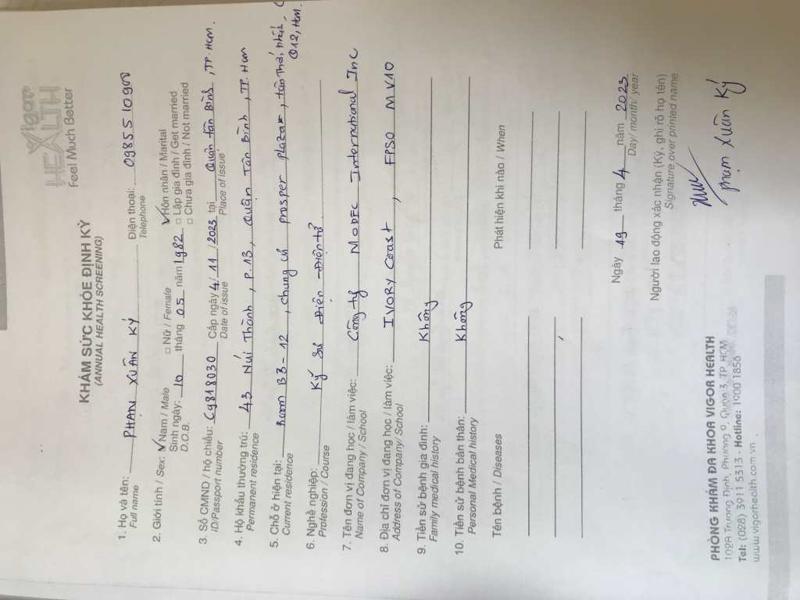 Vigor
HEALTH
Feel Much Better
KHÁM SỨC KHỎE ĐỊNH KỲ
(ANNUAL HEALTH SCREENING)
1. Họ và tên: PHẠN XUÂN KÝ Điện thoại: 0985510908
Full name Telephone
2. Giới tính / Sex: ✓Nam / Male □ Nữ / Female ✓Hôn nhân / Marital
Sinh ngày: 10 tháng 05 năm 1982 □ Lập gia đình / Get married
D.O.B. □ Chưa gia đình / Not married
3. Số CMND / hộ chiếu: C9818030 Cấp ngày 4/11/2023 tại Quận Tân Bình, TP HCM.
ID/Passport number Date of issue Place of issue
4. Hộ khẩu thường trú: 43 Núi Thành, P.13, Quận Tân Bình, TP. Hcm
Permanent residence
5. Chỗ ở hiện tại: Room B3-12, chung cư prosper plaza, tân Thới Nhất,
Current residence Q12, Hcm.
6. Nghề nghiệp: Kỹ sư Điện - Điện tử
Profession / Course
7. Tên đơn vị đang học / làm việc: Công ty MODEC International Inc
Name of Company / School
8. Địa chỉ đơn vị đang học / làm việc: IVORY Coast, FPSO MV10
Address of Company/ School
9. Tiền sử bệnh gia đình: Không
Family medical history
10. Tiền sử bệnh bản thân: Không
Personal Medical history
Tên bệnh / Diseases Phát hiện khi nào / When
Ngày 19 tháng 4 năm 2023
Day/ month/ year
Người lao động xác nhận (Ký, ghi rõ họ tên)
Signature over printed name
phạm Xuân Ký
PHÒNG KHÁM ĐA KHOA VIGOR HEALTH
102A Trương Định, Phường 9, Quận 3, TP. HCM
Tel: (028) 3911 5313 - Hotline: 1900 1856
www.vigorhealth.com.vn